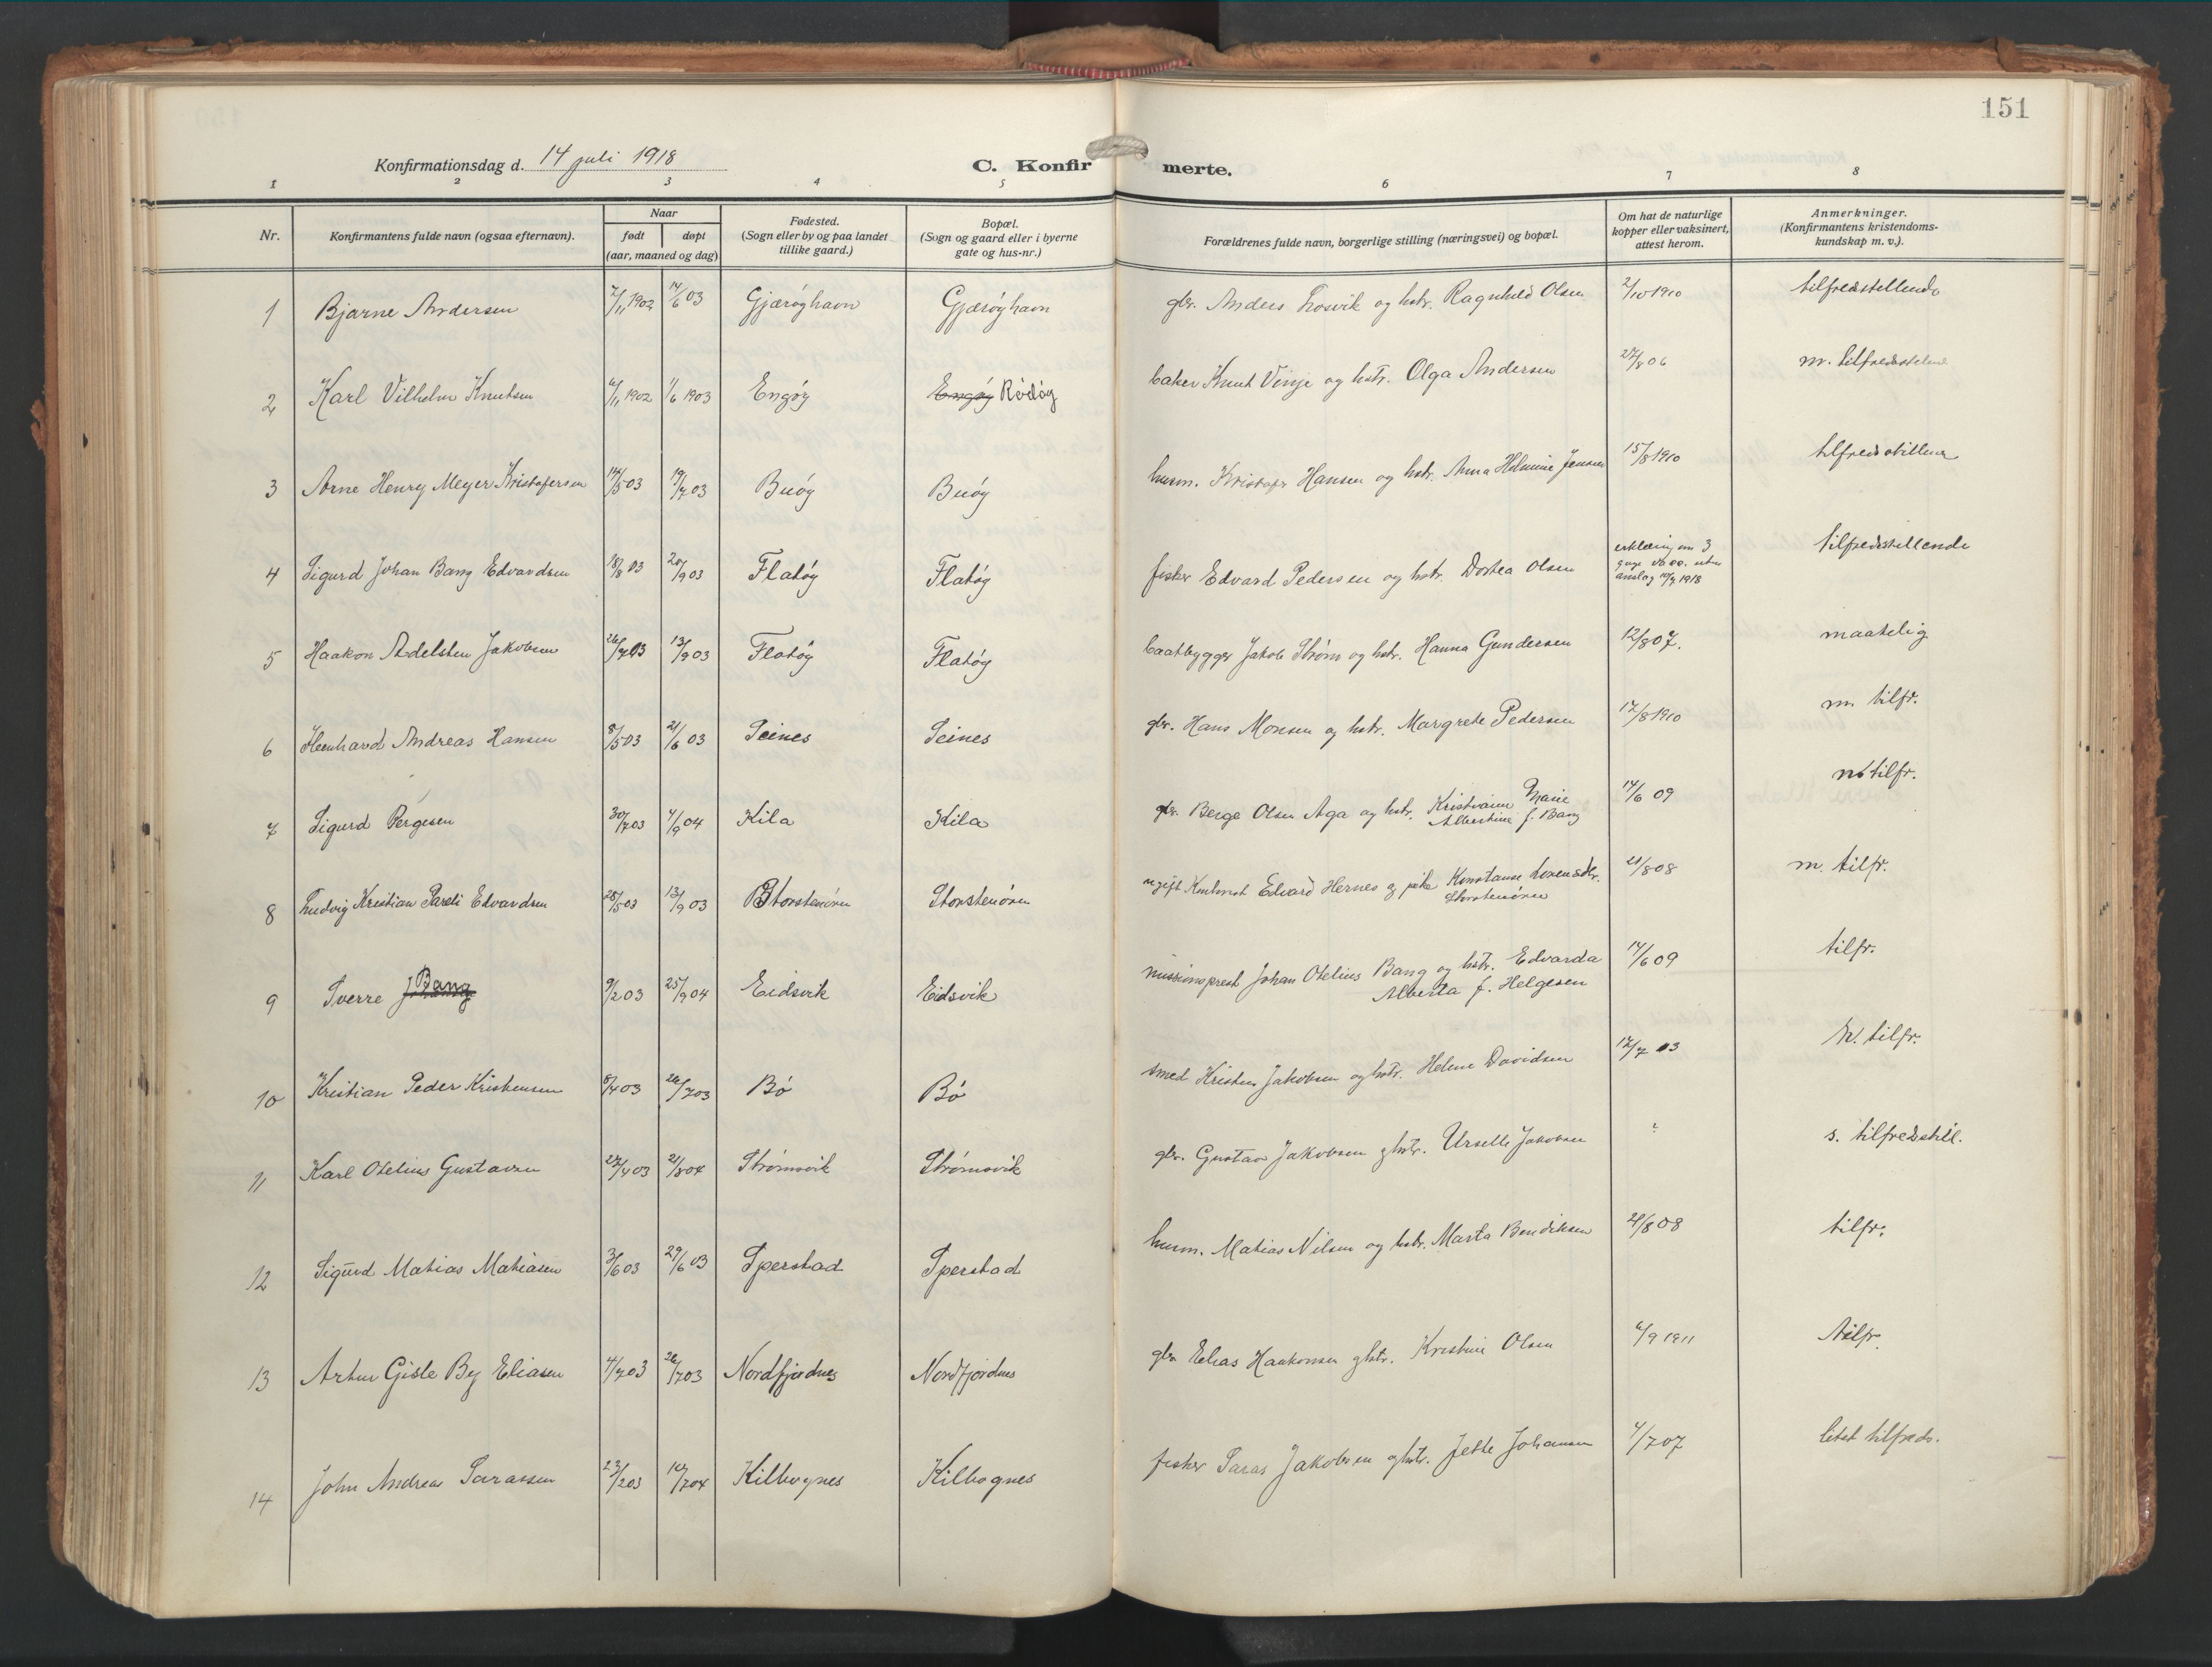 151
Konfirmationsdag d. 14 juli 1918
C. Konfirmerte.
1 2 3 4 5 6 7 8
Nr.
Konfirmantens fulde navn (ogsaa efternavn).
Naar
født døpt
(aar, maaned og dag)
Fødested.
(Sogn eller by og paa landet
tillike gaard.)
Bopæl.
(Sogn og gaard eller i byerne
gate og hus-nr.)
Forældrenes fulde navn, borgerlige stilling (næringsvei) og bopæl.
Om hat de naturlige
kopper eller vaksinert,
attest herom.
Anmerkninger.
(Konfirmantens kristendoms-
kundskap m. v.).
1 Bjarne Andersen 7/11 1902 14/6 03 Gjærøyhavn Gjærøyhavn gbr. Anders Losvik og hstr. Ragnhild Olsen 2/10 1910 tilfredsstillende
2 Karl Vilhelm Knutsen 6/11 1902 1/6 1903 Engøy Engøy Rødøy baker Knut Vinje og hstr. Olga Andersen 27/8 06 m. tilfredsstillend
3 Arne Henry Meyer Kristofersen 14/5 03 19/7 03 Buøy Buøy husm. Kristofer Hansen og hstr. Anna Helmine Jensen 15/8 1910 tilfredsstillend
4 Sigurd Johan Bang Edvardsen 18/8 03 20/9 03 Flatøy Flatøy fisker Edvard Pedersen og hstr. Dortea Olsen erklæring om 3
gange vacc. uten
anslag 10/7 1918 tilfredsstillende
5 Haakon Adelsten Jakobsen 26/7 03 13/9 03 Flatøy Flatøy baatbygger Jakob Strøm og hstr. Hanna Gundersen 12/8 07. maatelig
6 Henhard Andreas Hansen 8/5 03 21/6 03 Seines Seines gbr. Hans Monsen og hstr. Margrete Pedersen 17/8 1910 m. tilfr.
7 Sigurd Bergesen 30/7 03 4/9 04 Kila Kila gbr. Berge Olsen Aga og hstr. Kristianne Marie
Albertine f. Bang 14/6 09 m tilfr.
8 Ludvig Kristian Pareli Edvardsen 28/5 03 13/9 03 Storstenøren Storstenøren ugift Edvard Hernes og pike Konstanse Lorensdtr.
Storstenøren 21/8 08 m. tilfr.
9 Sverre Bang 9/2 03 25/9 04 Eidsvik Eidsvik missionsprest Johan Otelius Bang og hstr. Edvarda
Alberta f. Helgesen 14/6 09 tilfr.
10 Kristian Peder Kristensen 8/4 03 26/7 03 Bø Bø smed Kristen Jakobsen og hstr. Helene Davidsen 17/7 13 m. tilfr.
11 Karl Otelius Gustavsen 27/4 03 21/8 04 Strømsvik Strømsvik gbr. Gustav Jakobsen og hstr. Urselle Jakobsen ? s. tilfredsstil.
12 Sigurd Matias Matiasen 3/6 03 29/6 03 Sperstad Sperstad husm. Matias Nilsen og hstr. Marta Bendiksen 21/8 08 tilfr.
13 Artur Gisle By Eliasen 4/7 03 26/7 03 Nordfjordnes Nordfjordnes gbr. Elias Haakonsen og hstr. Kristine Olsen 6/9 1911 tilfr.
14 John Andreas Sarassen 23/2 03 10/7 04 Kilbognes Kilbognes fisker Saras Jakobsen og hstr. Jette Johansen 4/7 07 litet tilfreds.